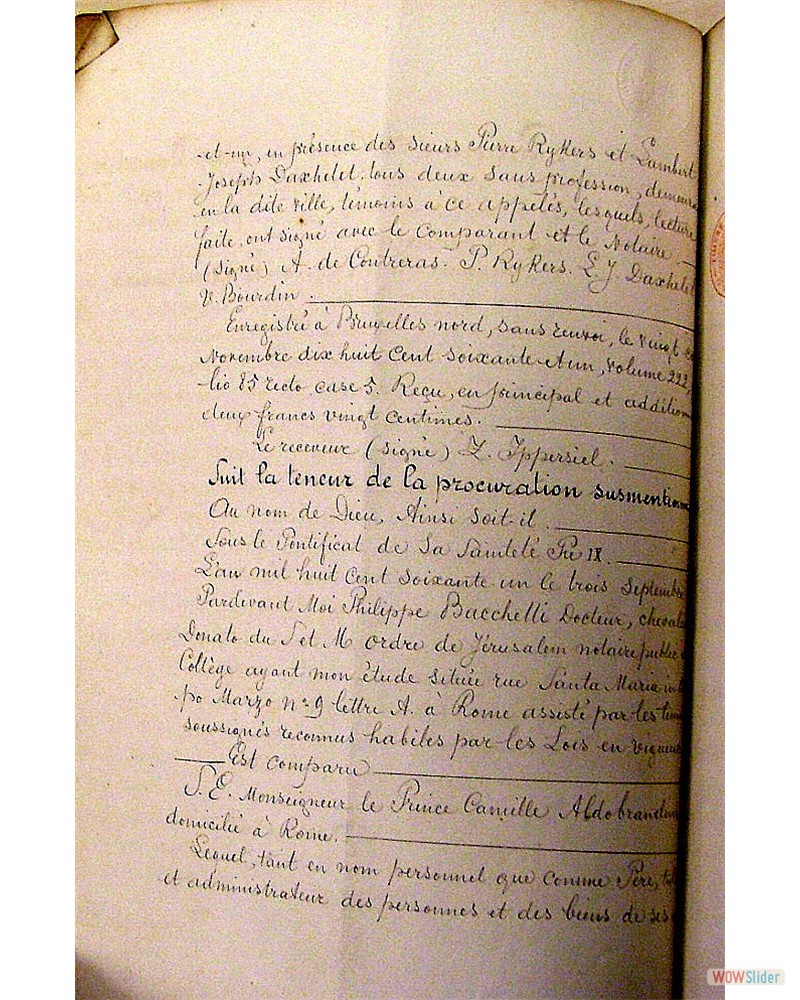 et-un, en présence des sieurs Pierre Rykers et Lambert
Joseph Daxhelet tous deux sans profession, demeura
en la dite ville, témoins à ce appelés, lesquels, lecture
faite, ont signé avec le comparant et le Notaire.
(signé) A. de Contreras - P. Rykers. L. J. Daxhelet
V. Bourdin.
Enregistré à Bruxelles nord, sans renvoi, le vingt
Novembre dix huit cent soixante-et-un, volume 222,
lio 85 recto case 5. Reçu, en principal et addition
deux francs vingt centimes.
Le receveur (signé) Z. Ippersiel.
Suit la teneur de la procuration susmentionn
Au nom de Dieu, Ainsi soit-il.
Sous le Pontificat de Sa Sainteté Pie IX.
L'an mil huit cent soixante un le trois Septembre
Pardevant Moi Philippe Bacchetti Docteur, cheval
Donato du S et M ordre de Jérusalem notaire public
Collège ayant mon étude située rue Santa Maria in
po Marzo n° 9 lettre A. à Rome assisté par les tém
soussignés reconnus habiles par les Lois en vigueur
Est comparu
S. E. Monseigneur le Prince Camille Aldobrandin
domicilié à Rome.
Lequel, tant en nom personnel que comme Père, tut
et administrateur des personnes et des biens de ses
WOWSlider